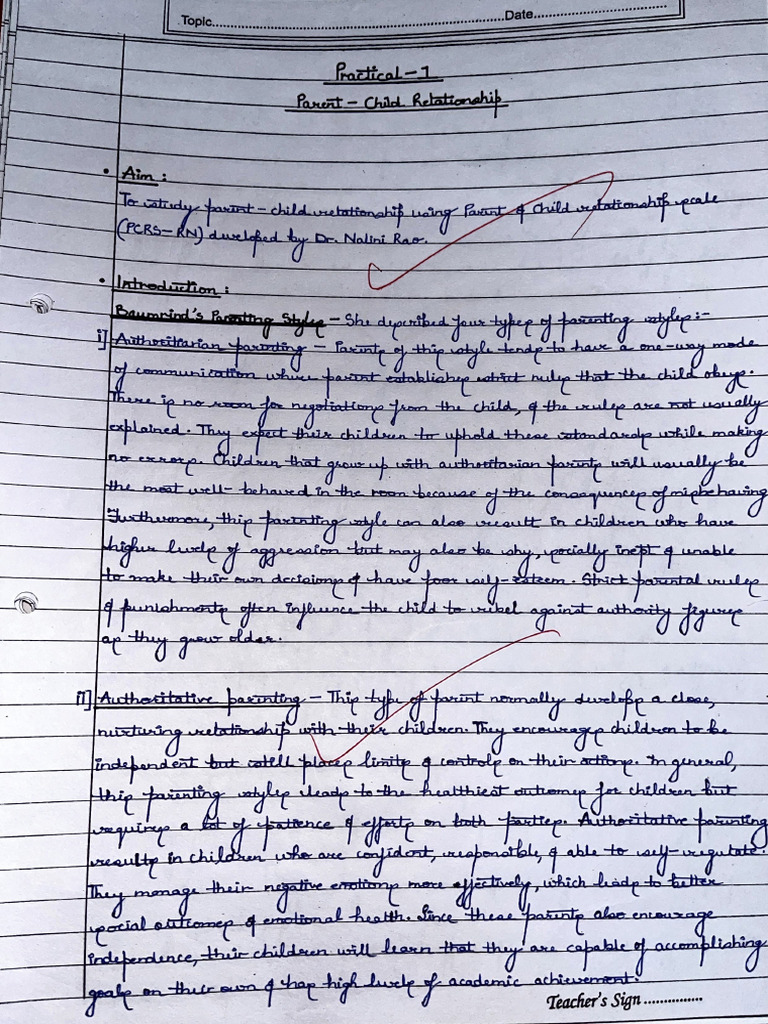 Topic.................................................................Date................................
Practical - 1
Parent - Child Relationship
• Aim :
To study parent-child relationship using Parent & Child relationship scale
(PCRS-RN) developed by Dr. Nalini Rao.
• Introduction :
Baumrind's Parenting Styles - She described four types of parenting styles:-
i] Authoritarian parenting - Parents of this style tends to have a one-way mode
of communication where parent establishes strict rules that the child obeys.
There is no room for negotiations from the child, & the rules are not usually
explained. They expect their children to uphold these standards while making
no errors. Children that grow up with authoritarian parents will usually be
the most well-behaved in the room because of the consequences of misbehaving
Furthermore, this parenting style can also result in children who have
higher levels of aggression but may also be shy, socially inept & unable
to make their own decisions & have poor self-esteem. Strict parental rules
& punishments often influence the child to rebel against authority figures
as they grow older.
ii] Authoritative parenting - This type of parent normally develops a close,
nurturing relationship with their children. They encourages children to be
independent but still places limits & controls on their actions. In general,
this parenting styles leads to the healthiest outcomes for children but
requires a lot of patience & efforts on both parties. Authoritative parenting
results in children who are confident, responsible, & able to self-regulate.
They manage their negative emotions more effectively, which leads to better
social outcomes & emotional health. Since these parents also encourage
independence, their children will learn that they are capable of accomplishing
goals on their own & has high levels of academic achievement.
Teacher's Sign ...............